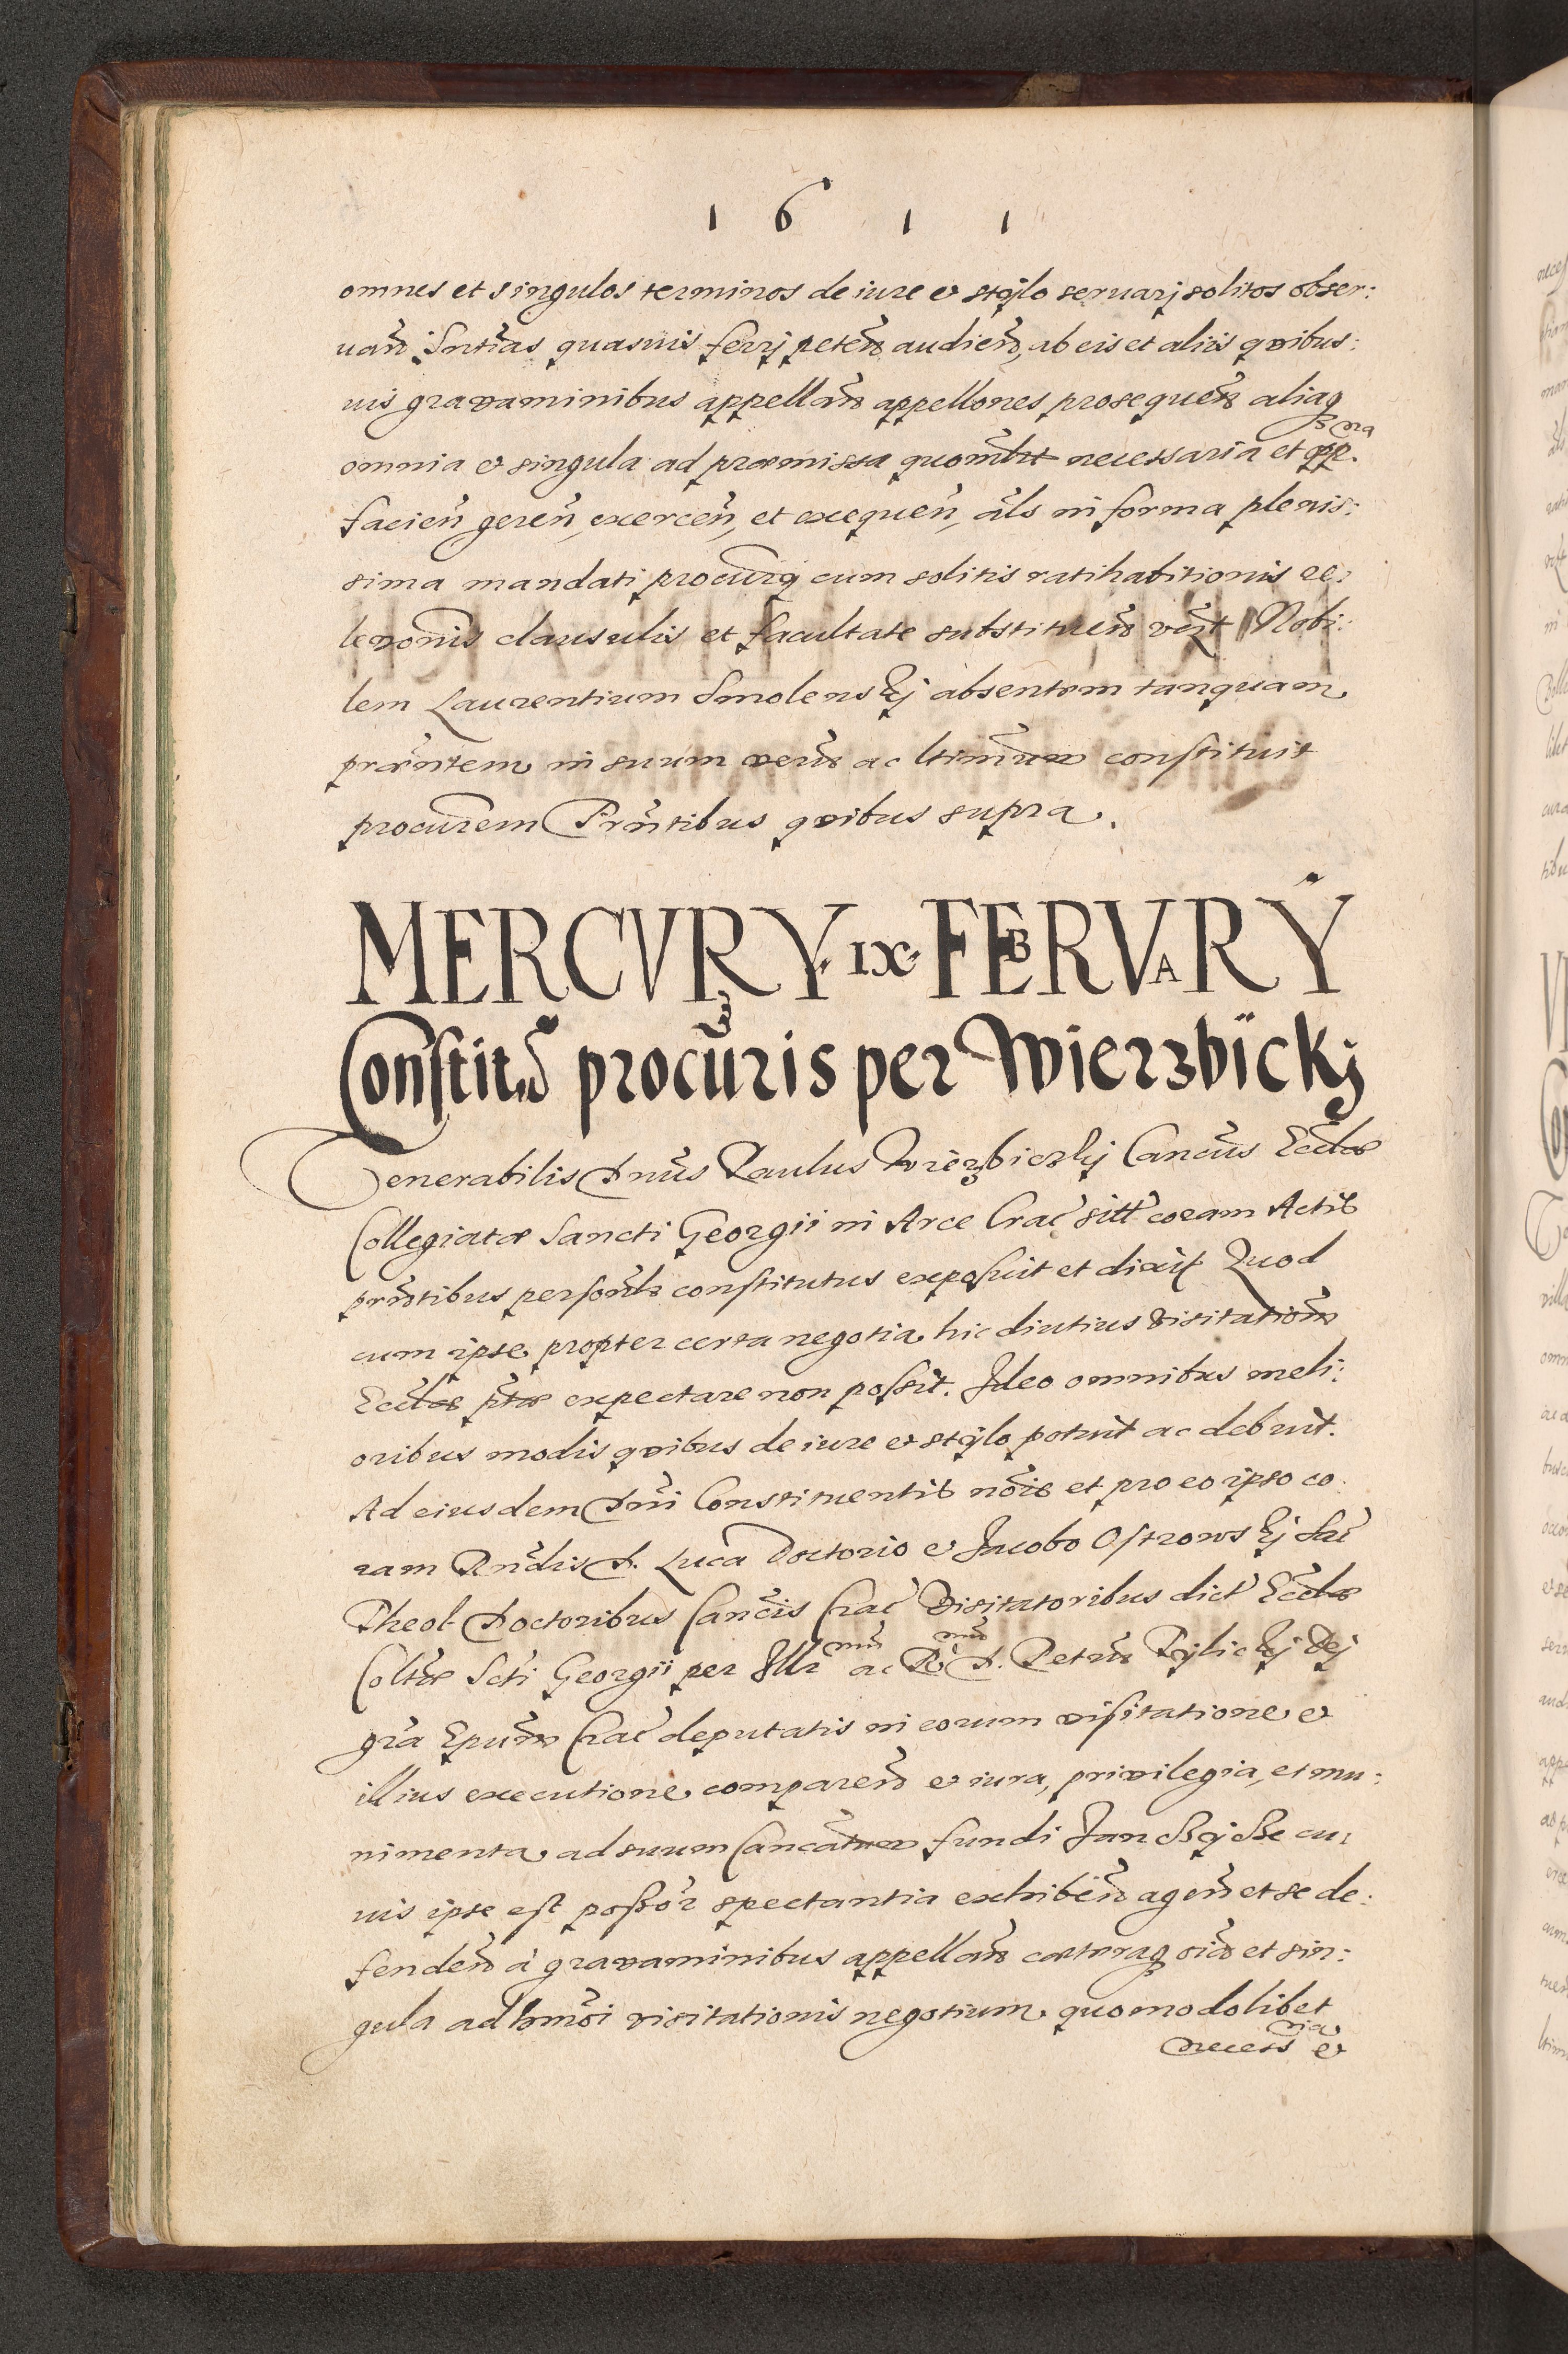 1 6 1 1
omnes et singulos terminos de iure et stylo seruarj solitos obser:
uan̄. Sntīas quasuis ferrj peten̄ audien̄, ab eis et aliis quibus:
uis grauaminibus appellan̄ appellones prosequen̄ aliaq3
omnia et singula ad præmissa quomlt necessaria et opp.na
facien̄ geren̄, exercen̄, et exequen̄, āls in forma plenis:
sima mandati procurij cum solitis ratihabitionis re:
leuonis clausulis et facultate substituen̄ vēr̄t Nobi:
lem Laurentium Smolenskj absentem tanquam
præn̄tem in suum verū ac ltimum constituit
procurem Prn̄tibus quibus supra.
MERCVRY IX FEBRVARY
Constit.o procūris per Wierzbickj
Venerabilis Dnūs Paulus Wierzbiczkj Cancūs Eccłæ
Collegiatæ Sancti Georgii in Arce Crac̄ sitt̄ coram Actis
prn̄tibus personłr constitutus exposuit et dixit Quod
cum ipse propter certa negotia hic diutius visitationē
Eccłæ ptæ expectare non possit. Ideo omnibus meli:
oribus modis quibus de iure et stylo potuit ac debuit.
Ad eiusdem Dnī Constituentis noīe et pro eo ipso co:
ram Rndis D. Luca Doctorio et Jacobo Ostrowskj Sac̄
Theol. Doctoribus Cancīs Crac̄ Visitatoribus dict̄ Eccłæ
Coltæ Scti Georgii per Illr mū ac R mū D. Petrū Tylickj Dej
grā Epūm Crac̄ deputatis in eorum visitatione et
illius executione comparen̄ et iura, privilegia, et mu:
nimenta ad suum Cancātum fundi Janczycze cu:
ius ipse est possōr spectantia exhiben̄ agen̄ et se de:
fenden̄ à grauaminibus appellan̄ cæteraq3 oīa et sin:
gula ad hmōi visitationis negotium quomodolibet
necess.ria et